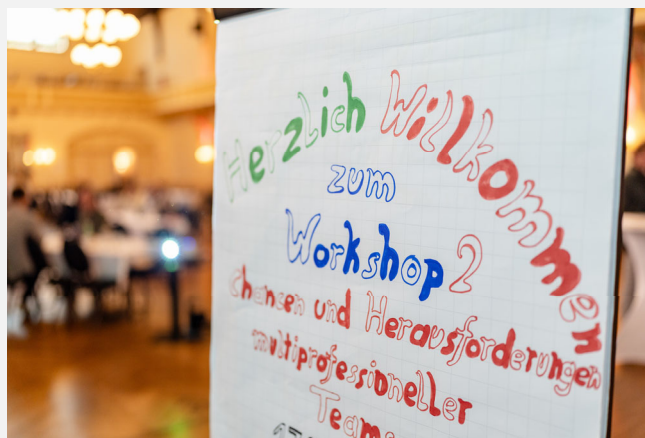 Herzlich Willkommen
zum
Workshop 2
Chancen und Herausforderungen
multiprofessioneller
Teams